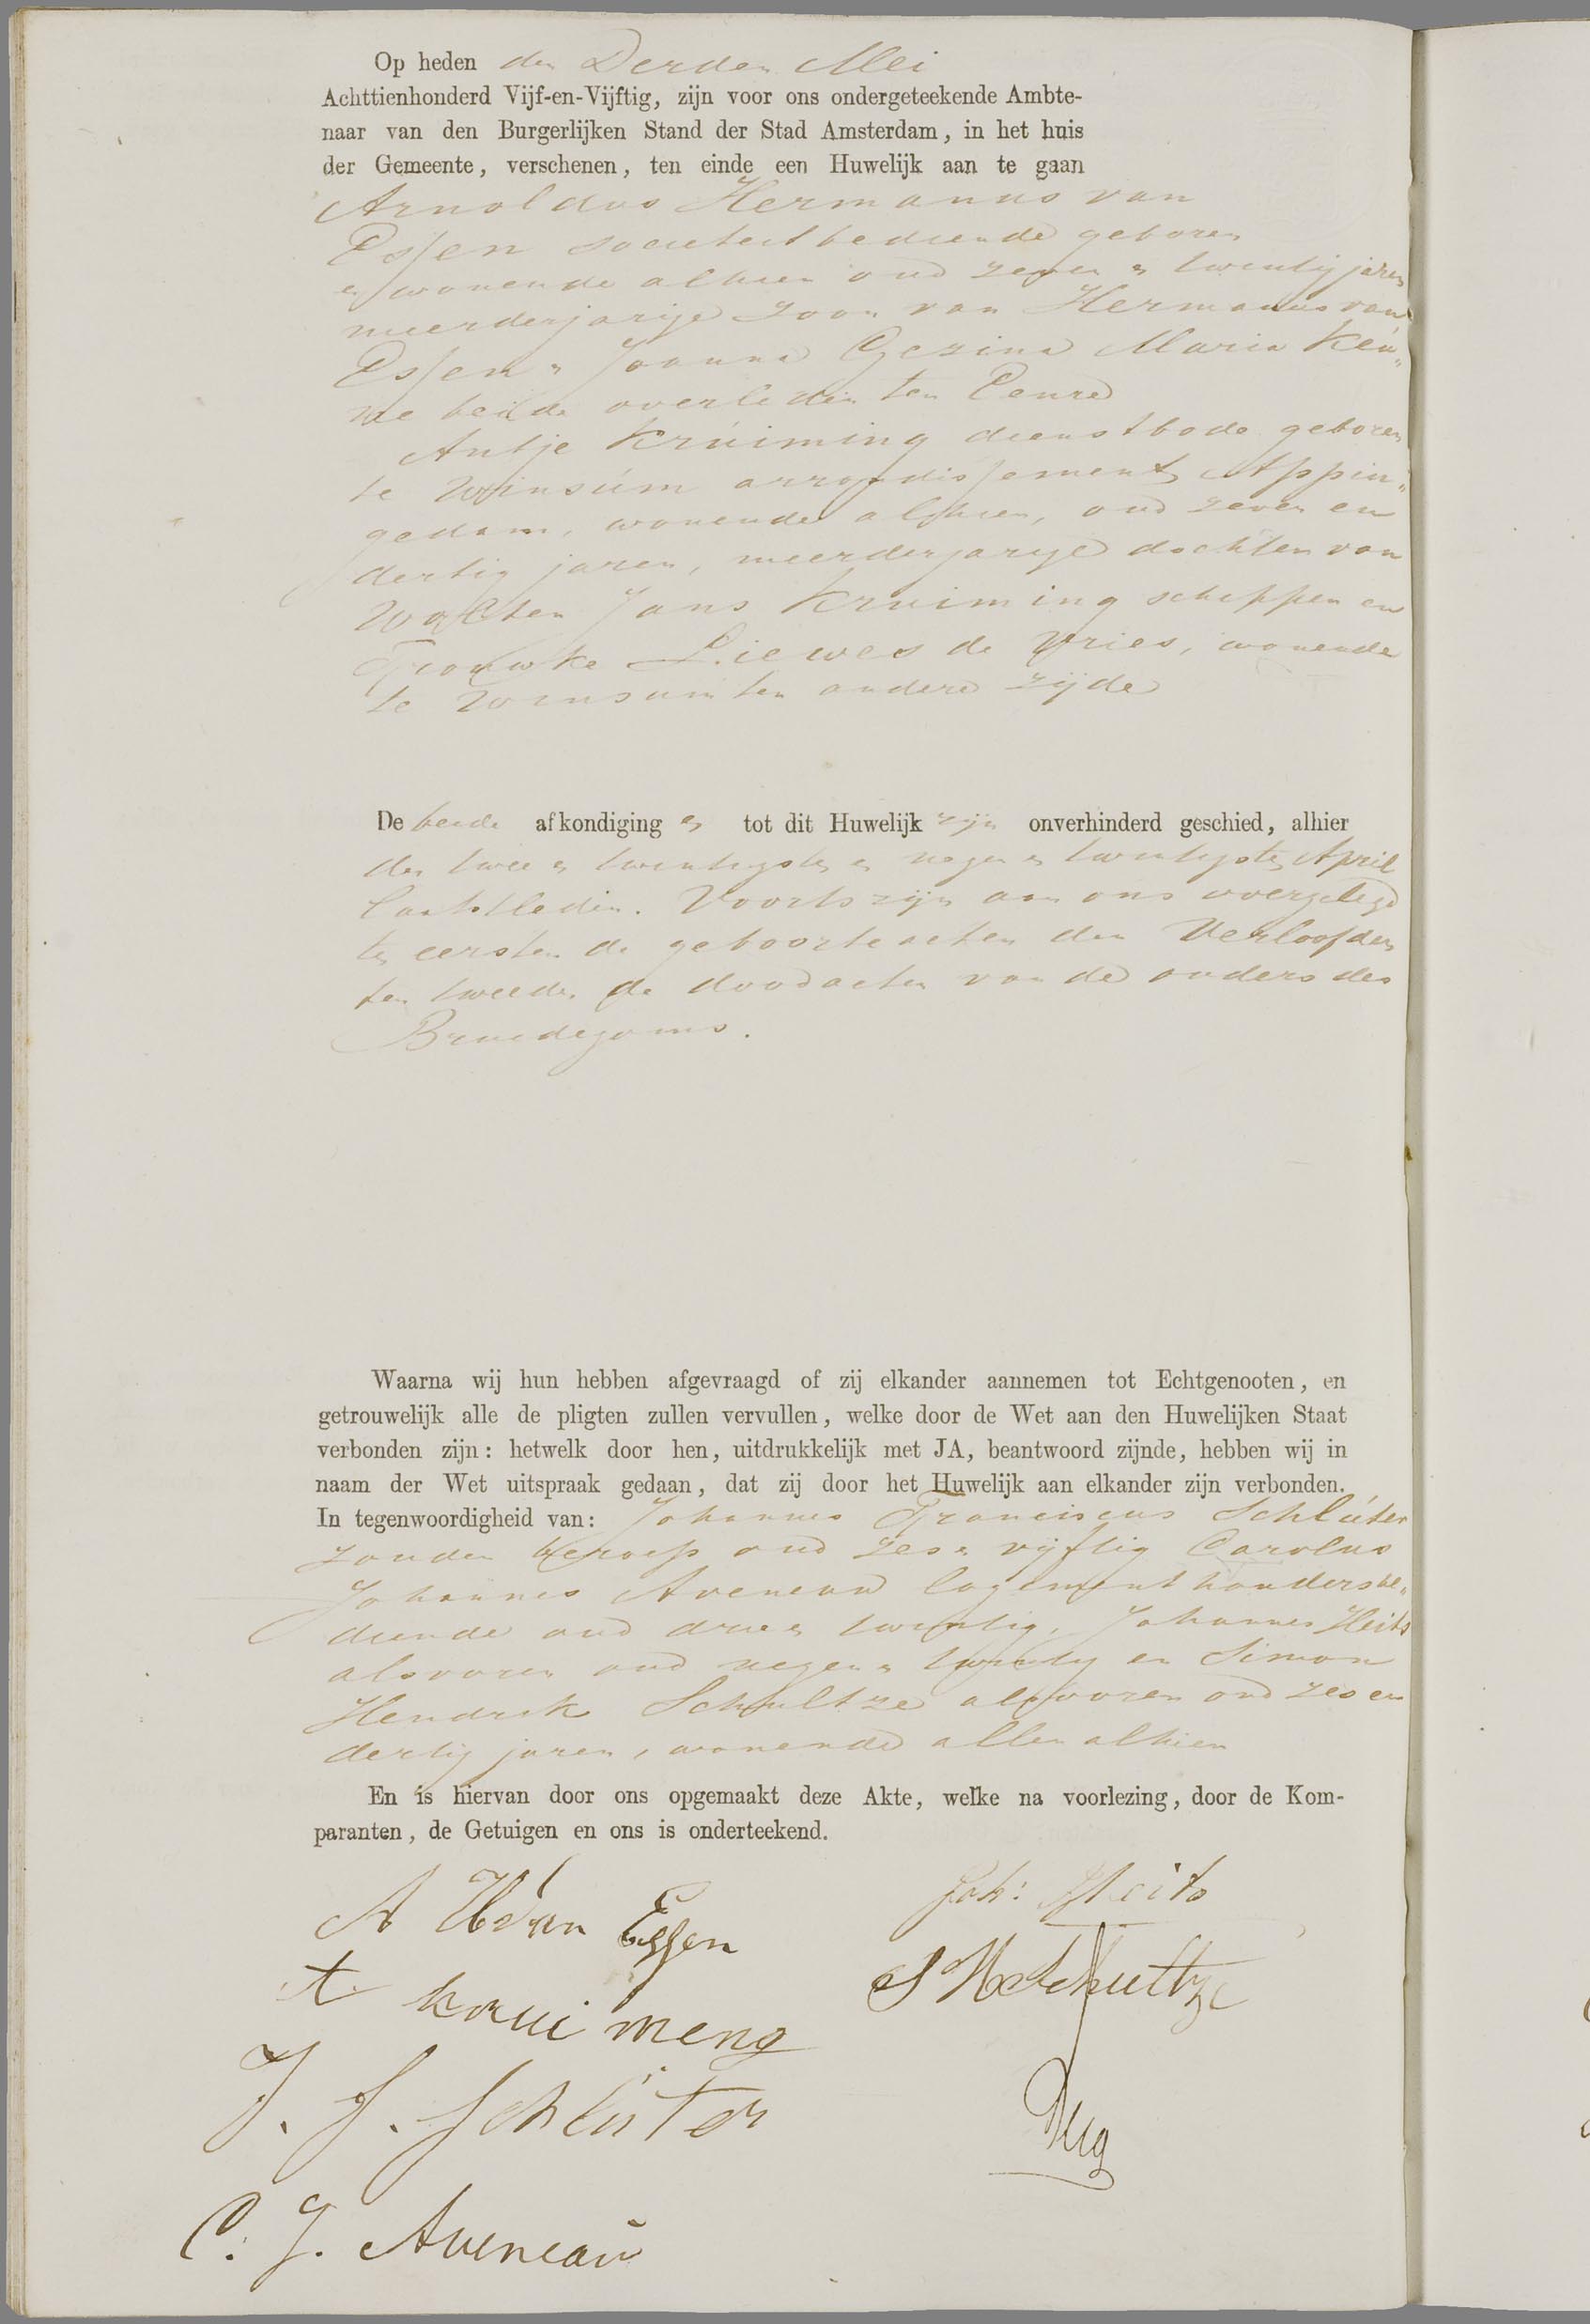 Op heden den Derden Mei
Achttienhonderd Vijf-en-Vijftig, zijn voor ons ondergeteekende Ambte-
naar van den Burgerlijken Stand der Stad Amsterdam, in het huis
der Gemeente, verschenen, ten einde een Huwelijk aan te gaan
Arnoldus Hermanus van
Essen societeitbediende geboren
en wonende alhier oud zeven en twentig jaren
meerderjarige zoon van Hermanus van
Essen en Joanna Gezina Maria Keu„
ne beide overleden ter Eenre
Antje Kruiming dienstbode geboren
te Winsum arrondissement Appin„
gedam, wonende alhier, oud zeven en
dertig jaren, meerderjarige dochter van
Wolter Jans Kruiming schipper en
Trouwke Liewes de Vries, wonende
te Winsum ter andere zijde
De beide afkondiging en tot dit Huwelijk zijn onverhinderd geschied, alhier
den twee en twentigsten en negen en twentigsten April
laatstleden. Voorts zijn aan ons overgelegd
ten eersten de geboorteacten der Verloofden
ten tweeden de doodacten van de ouders des
Bruidegoms.
Waarna wij hun hebben afgevraagd of zij elkander aannemen tot Echtgenooten, en
getrouwelijk alle de pligten zullen vervullen, welke door de Wet aan den Huwelijken Staat
verbonden zijn: hetwelk door hen, uitdrukkelijk met JA, beantwoord zijnde, hebben wij in
naam der Wet uitspraak gedaan, dat zij door het Huwelijk aan elkander zijn verbonden.
In tegenwoordigheid van: Johannes Franciscus Schlúter
zonder beroep oud zes en vijftig Carolus
Johannes Aveneau logementhoudersbe„
diende oud drie en twentig, Johannes Heits
alsvoren oud negen en twentig en Simon
Hendrik Schultze alsvoren oud zes en
dertig jaren, wonende allen alhier
En is hiervan door ons opgemaakt deze Akte, welke na voorlezing, door de Kom-
paranten, de Getuigen en ons is onderteekend.
A H van Essen
Joh: Heits
A kruimeng
S H Schultze
J. F. Schlüter
C. J. Aveneau